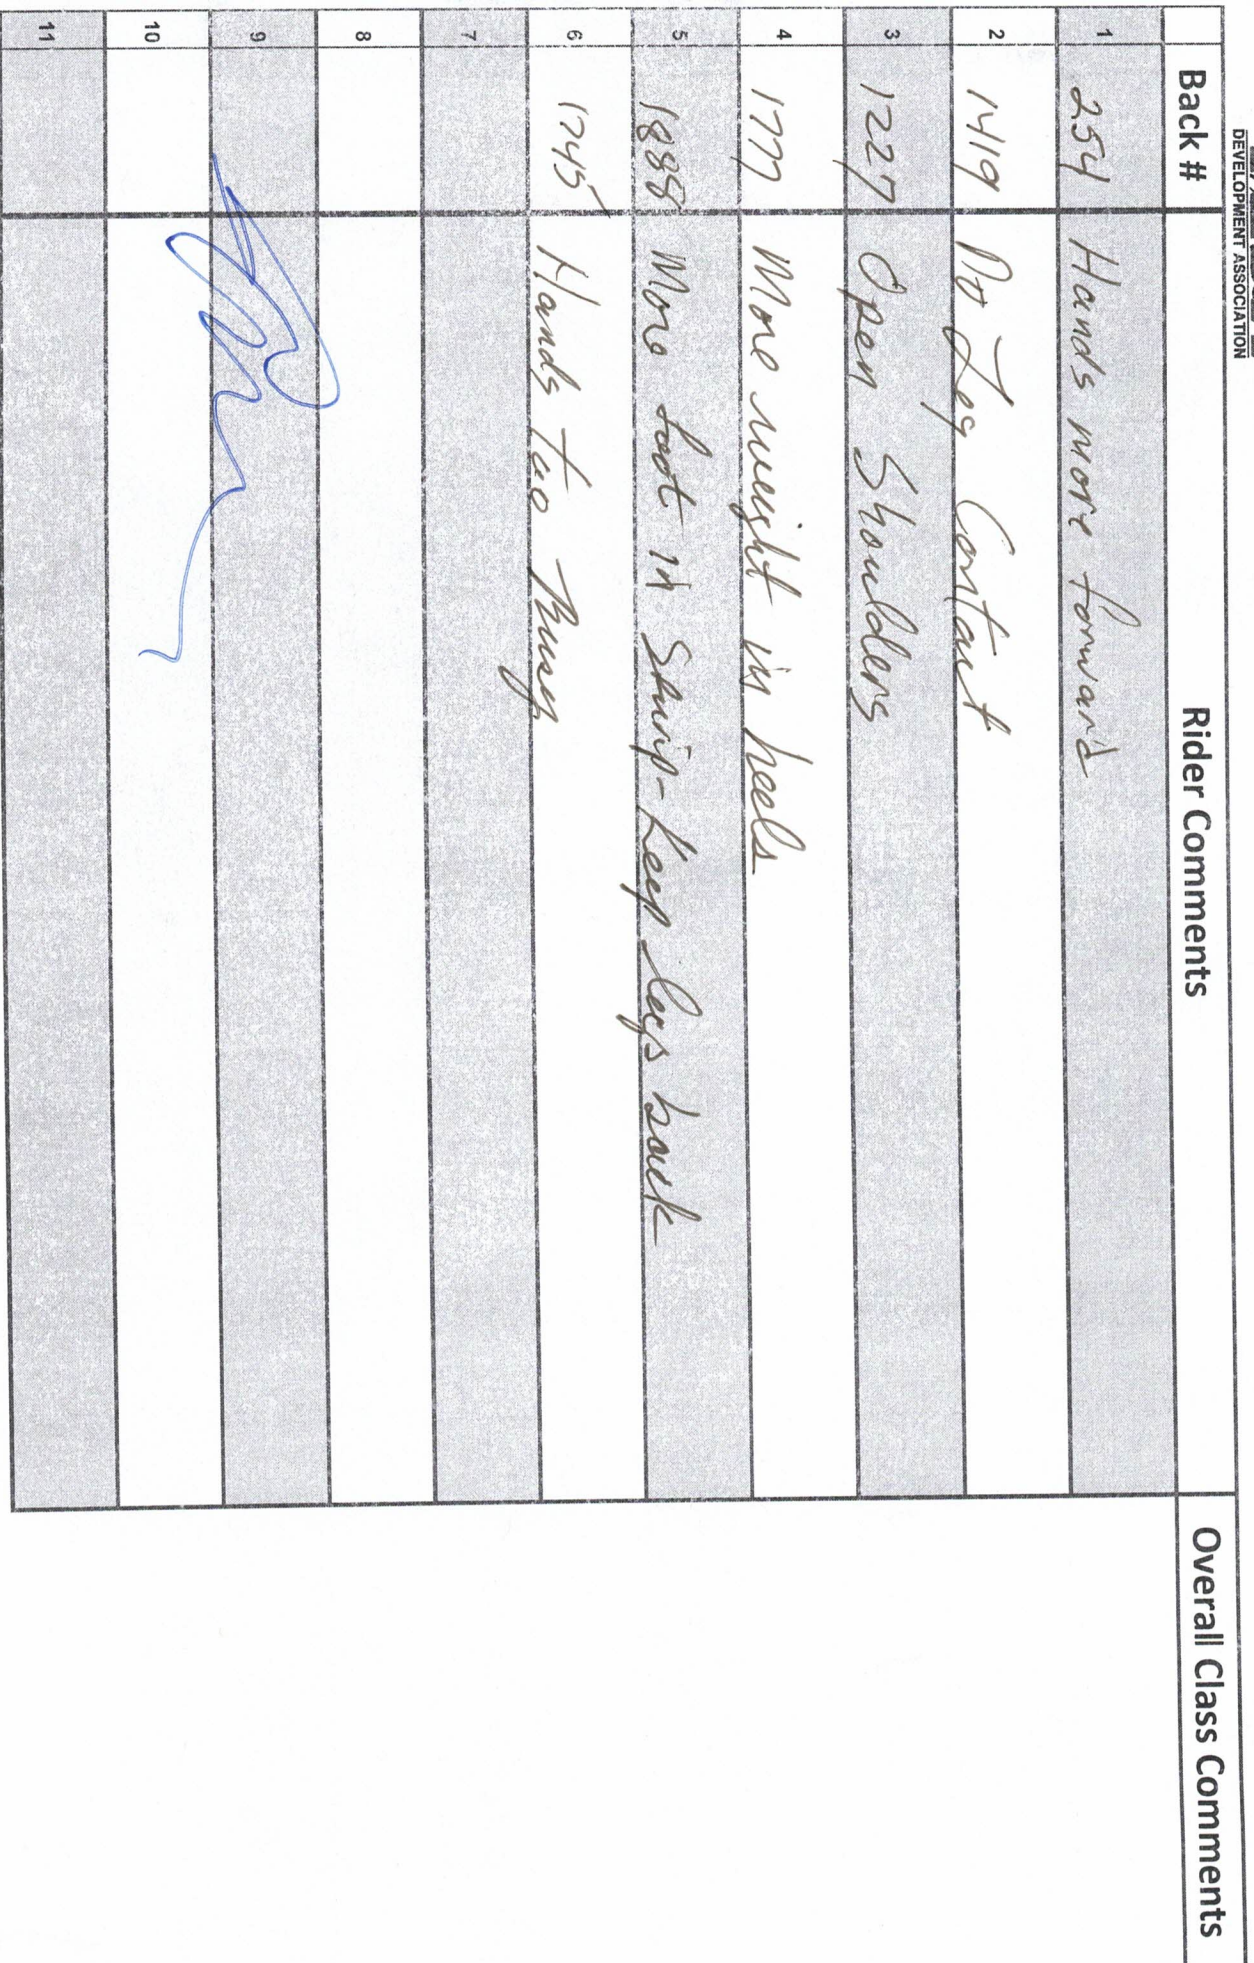 DEVELOPMENT ASSOCIATION
Back # Rider Comments Overall Class Comments
1 254 Hands more forward
2 1419 No Leg Contact
3 1227 Open Shoulders
4 1777 More weight in heels
5 1888 More foot in Stirrip - Keep legs back
6 1745 Hands too Busy
7
8
9
10
11